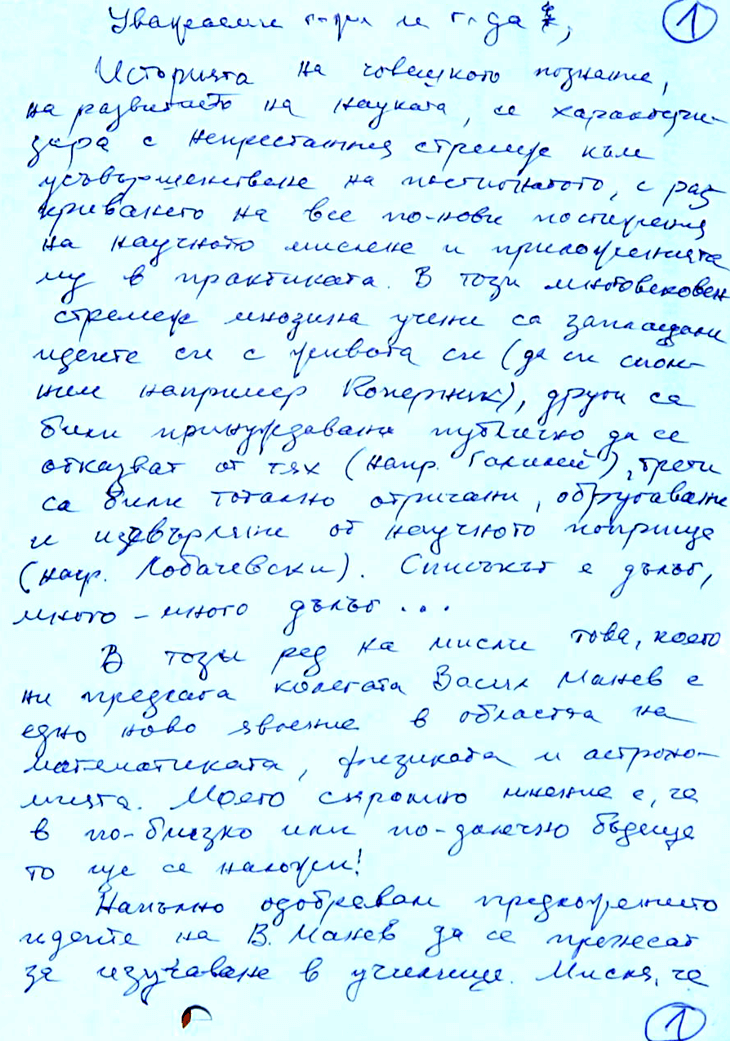 Уважаеми г-ри и г. да, ①
Историята на човешкото познание,
на развитието на науката, се характери-
зира с непрестанния стремеж към
усъвършенстване на постигнатото, с раз
криването на все по-нови постижения
на научното мислене и приложенията
му в практиката. В този многовековен
стремеж мнозина учени са заплащали
идеите си с живота си (да си спом-
ним например Коперник), други са
били принуждавани публично да се
отказват от тях (напр. Галилей), трети
са били тотално отричани, обругавани
и изхвърляни от научното поприще
(напр. Лобачевски). Списъкът е дълъг,
много-много дълъг...
В този ред на мисли това, което
ни предлага колегата Васил Манев е
едно ново явление в областта на
математиката, физиката и астроно-
мията. Моето скромно мнение е, че
в по-близко или по-далечно бъдеще
то ще се наложи!
Напълно одобрявам предложението
идеите на В. Манев да се пренесат
за изучаване в училище. Мисля, че
①